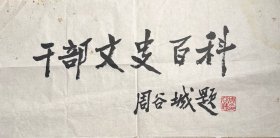 干部文史百科
周谷城题